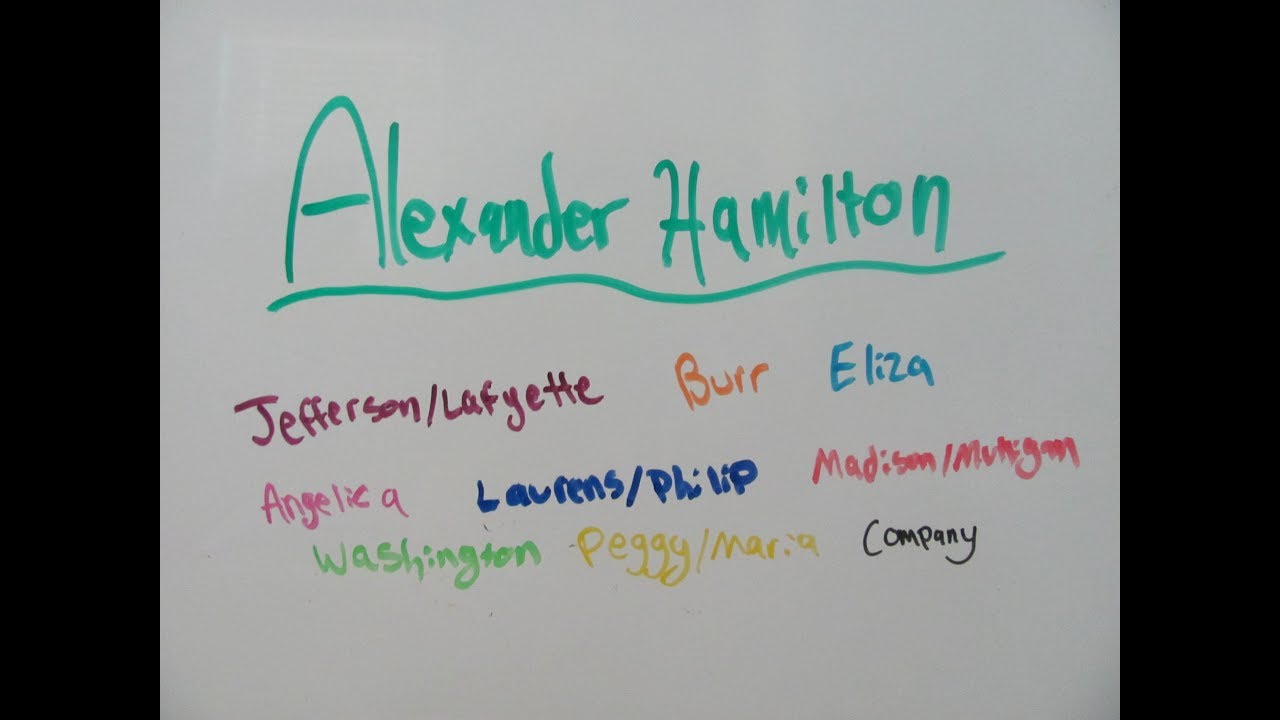 Alexander Hamilton
Jefferson/Lafyette Burr Eliza
Angelica Laurens/Philip Madison/Mulligan
Washington Peggy/Maria Company